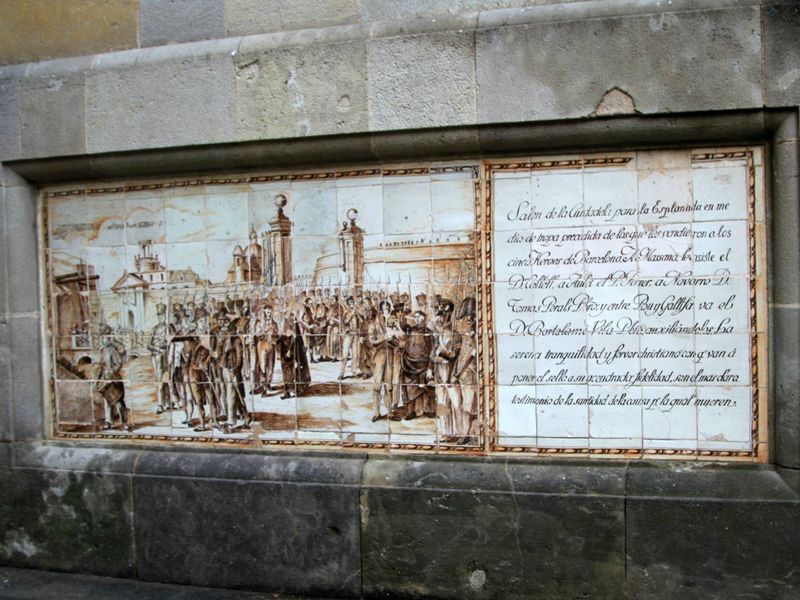 Salen de la Ciudadela para la Esplanada en me
dio de tropa precedida de los que los vendieron a los
cinco Heroes de Barcelona. A Massana le asiste el
P.
a Aulet el P. Ferrer, a Navarro D.
Tomas Perals Pbro; y entre Pou y Gallifa va el
D. Bartolome Vila Pbro, auxiliándoles. La
serena tranquilidad y fervor christiano con q. van á
poner el sello a su acendrada fidelidad, son el mas claro
testimonio de la santidad de la causa pr. la qual mueren.